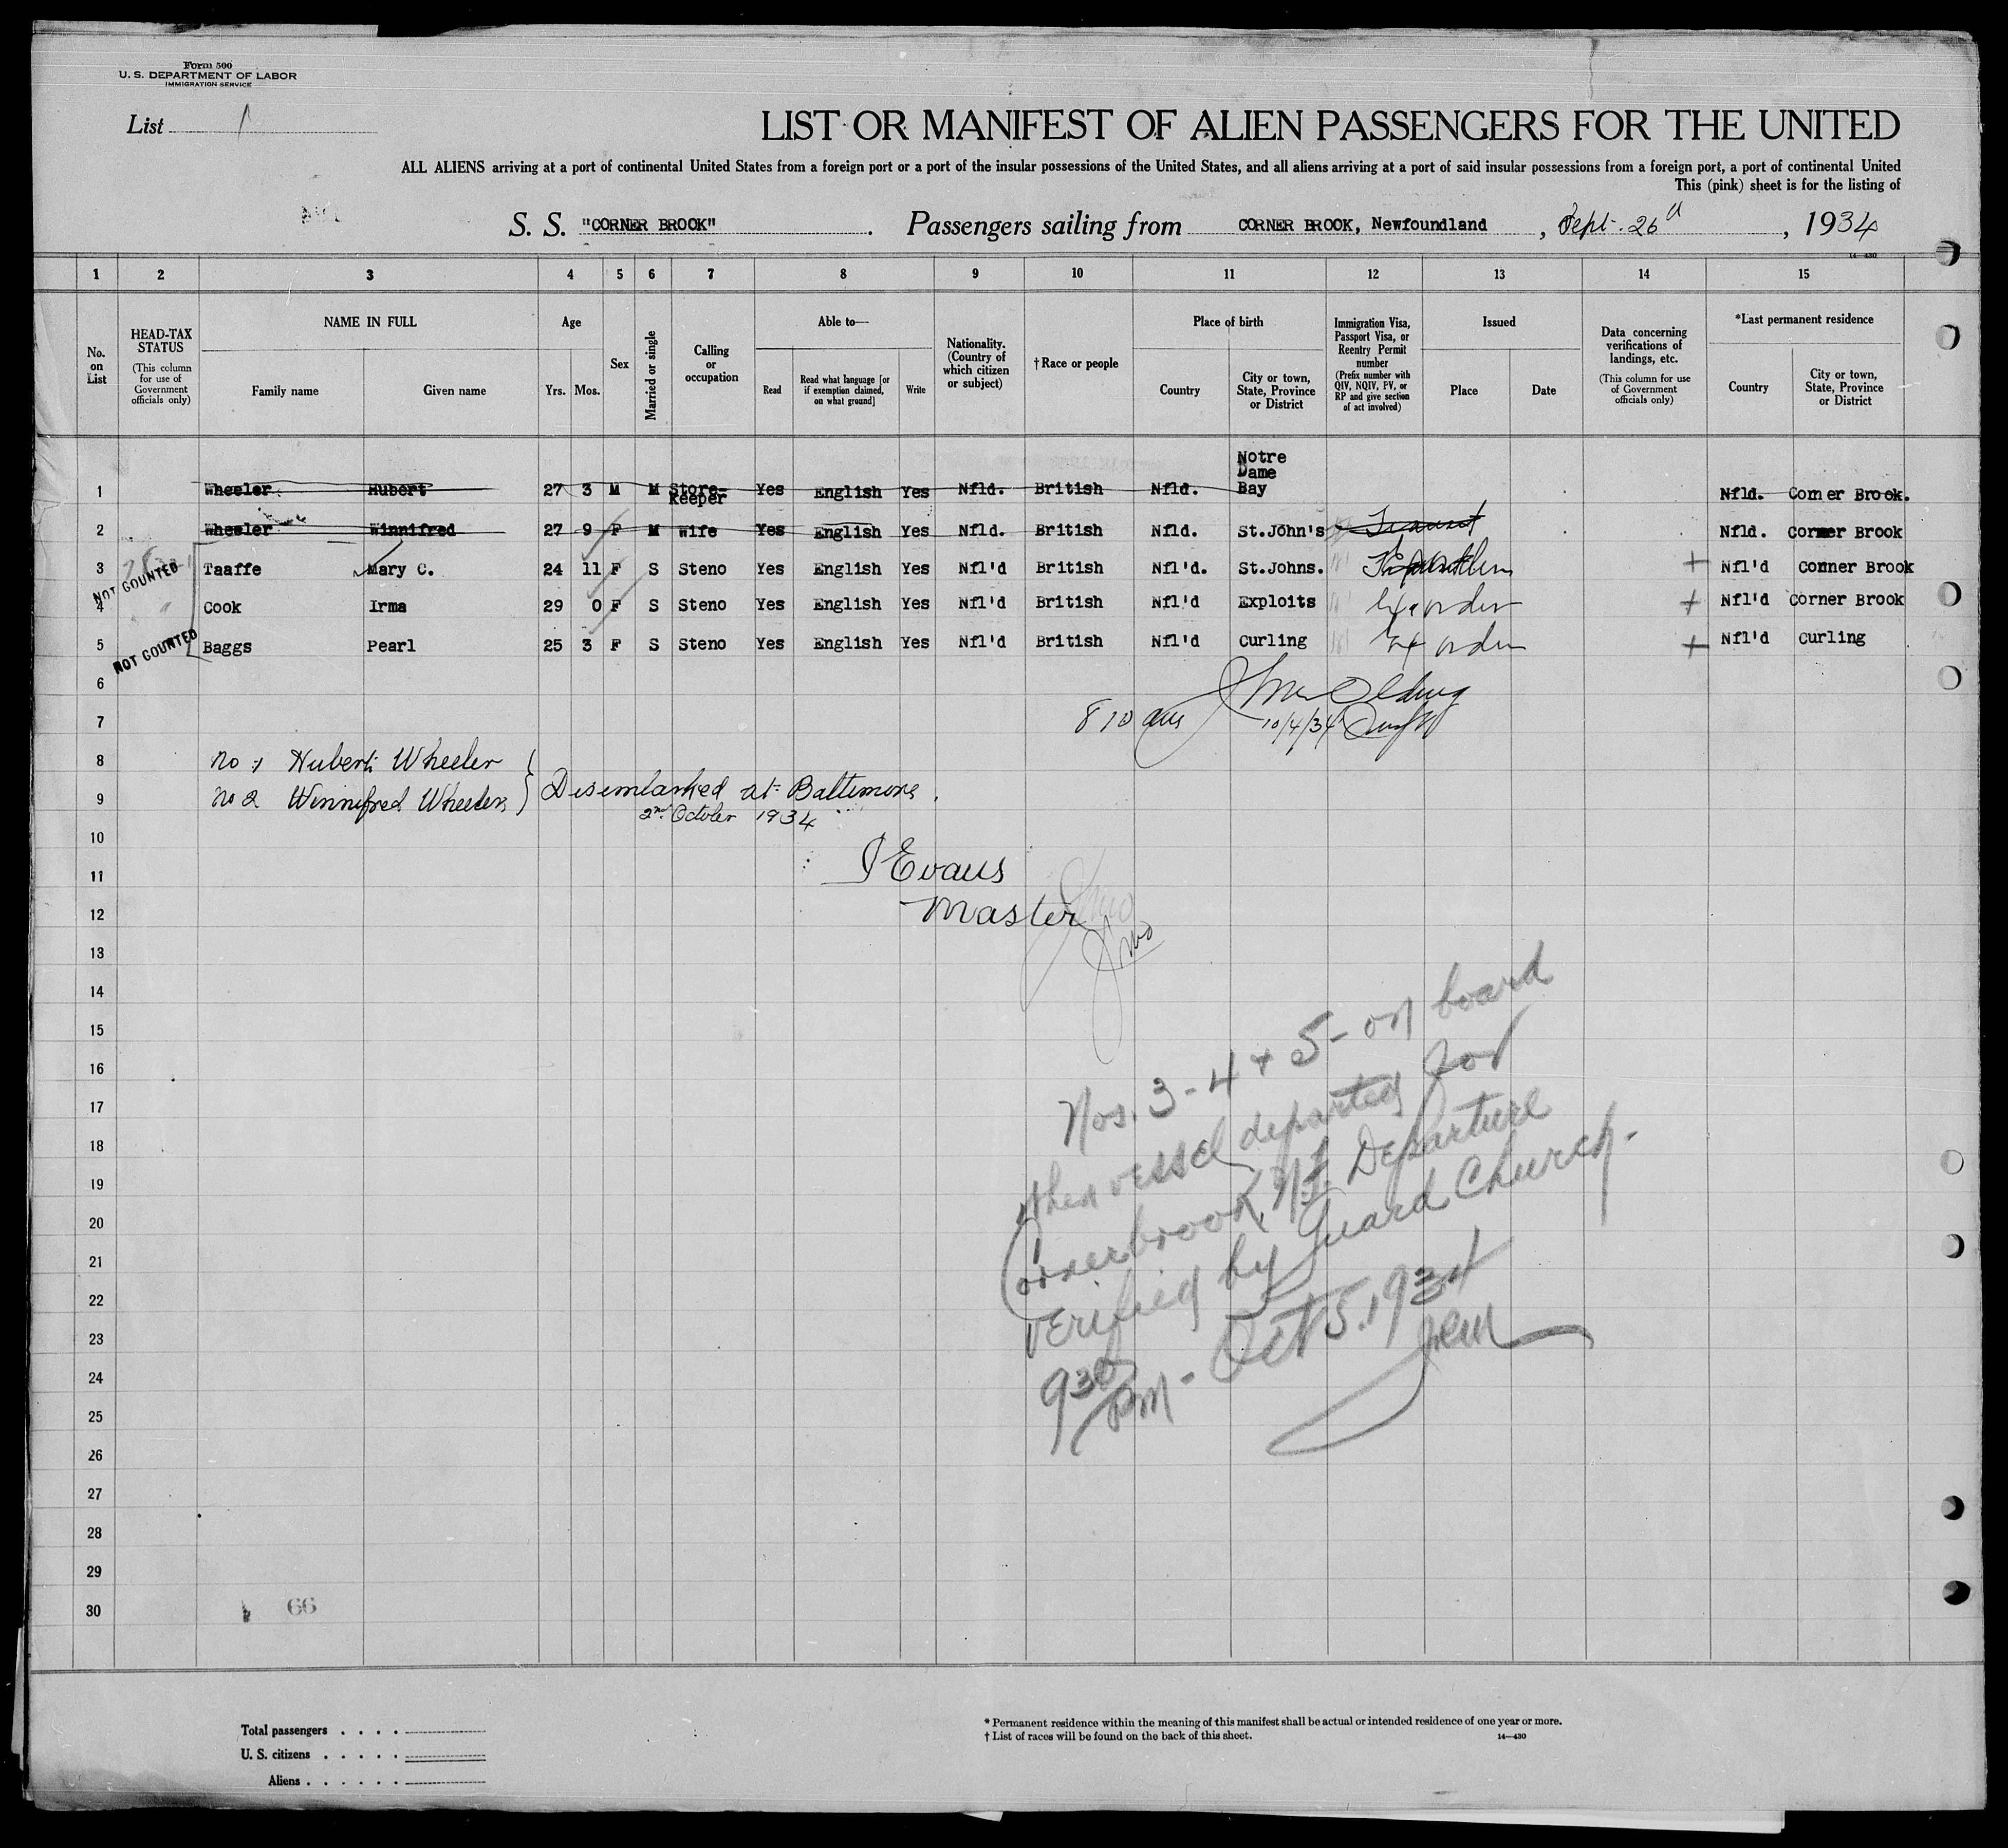 Form 500
U. S. DEPARTMENT OF LABOR
IMMIGRATION SERVICE
List 1
LIST OR MANIFEST OF ALIEN PASSENGERS FOR THE UNITED
ALL ALIENS arriving at a port of continental United States from a foreign port or a port of the insular possessions of the United States, and all aliens arriving at a port of said insular possessions from a foreign port, a port of continental United
This (pink) sheet is for the listing of
S. S. "CORNER BROOK" . Passengers sailing from CORNER BROOK, Newfoundland , Sept. 26th , 1934
14-430
1 2 3 4 5 6 7 8 9 10 11 12 13 14 15
No. on List
HEAD-TAX STATUS (This column for use of Government officials only)
NAME IN FULL Family name Given name
Age Yrs. Mos.
Sex
Married or single
Calling or occupation
Able to— Read Read what language [or if exemption claimed, on what ground] Write
Nationality. (Country of which citizen or subject)
† Race or people
Place of birth Country City or town, State, Province or District
Immigration Visa, Passport Visa, or Reentry Permit number (Prefix number with QIV, NQIV, PV, or RP and give section of act involved)
Issued Place Date
Data concerning verifications of landings, etc. (This column for use of Government officials only)
*Last permanent residence Country City or town, State, Province or District
1 Wheeler Hubert 27 3 M M Store-Keeper Yes English Yes Nfld. British Nfld. Notre Dame Bay Nfld. Corner Brook.
2 Wheeler Winnifred 27 9 F M Wife Yes English Yes Nfld. British Nfld. St.John's Transit Nfld. Corner Brook
NOT COUNTED
3 Taaffe Mary C. 24 11 F S Steno Yes English Yes Nfl'd British Nfl'd. St.Johns. + Nfl'd Corner Brook
4 Cook Irma 29 0 F S Steno Yes English Yes Nfl'd British Nfl'd Exploits + Nfl'd Corner Brook
NOT COUNTED
5 Baggs Pearl 25 3 F S Steno Yes English Yes Nfl'd British Nfl'd Curling + Nfl'd Curling
6
7 8 10 am 10/4/34
8 No 1 Hubert Wheeler
9 No 2 Winnifred Wheeler } Disembarked at Baltimore.
2nd October 1934
10
11 J Evans
12 Master
13
14
15
16
17
18
19
20
21
22
23
24
25
26
27
28
29
30
Nos. 3-4 + 5- on board
when vessel departed for
Cornerbrook, N.F. Departure
verified by Guard Church-
930 PM - Oct 5. 1934
66
Total passengers . . . .
U. S. citizens . . . . .
Aliens . . . . . .
* Permanent residence within the meaning of this manifest shall be actual or intended residence of one year or more.
† List of races will be found on the back of this sheet. 14-430